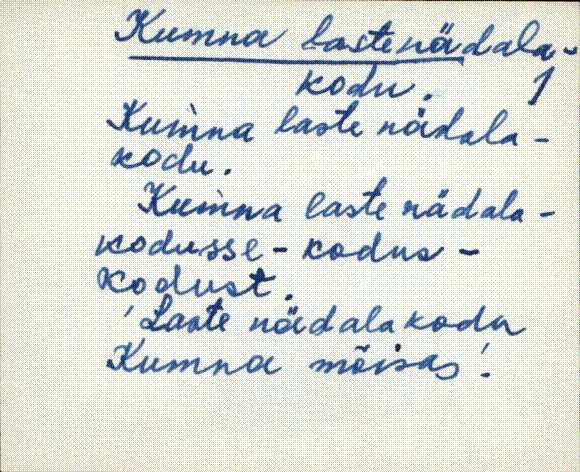 Kumna lastenädala-
kodu. 1
Kum̀na laste nädala-
kodu.
Kum̀na laste nädala-
kodusse - kodus -
kodust.
'Laste nädalakodu
Kumna mõisas'.